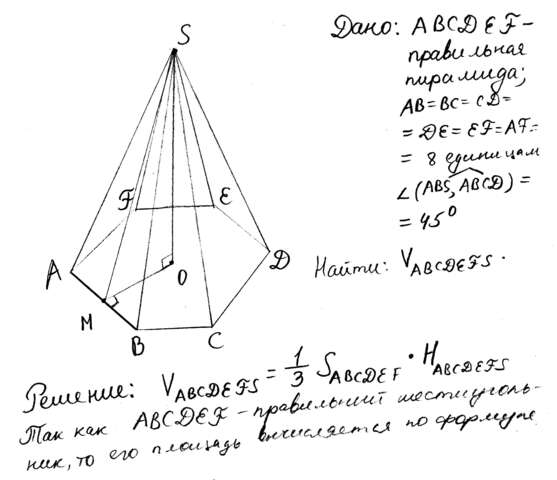 S
Дано: ABCDEF-
правильная
пирамида;
AB=BC=CD=
=DE=EF=AF=
=8 единицам
∠(ABS, ABCD)=
=45°
F
E
A
O
D
M
B
C
Найти: V ABCDEFS.
Решение: V ABCDEFS = 1/3 S ABCDEF · H ABCDEFS
Так как ABCDEF-правильный шестиуголь-
ник, то его площадь вычисляется по формуле